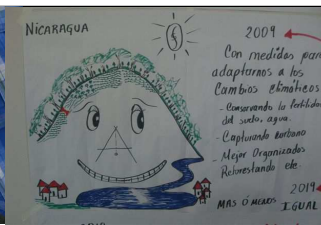 NICARAGUA
2009
Con medidas para
adaptarnos a los
Cambios climáticos
- Conservando la fertilidad
del suelo, agua.
- Capturando carbono
- Mejor Organizados
Reforestando etc
2019
MAS Ó MENOS IGUAL